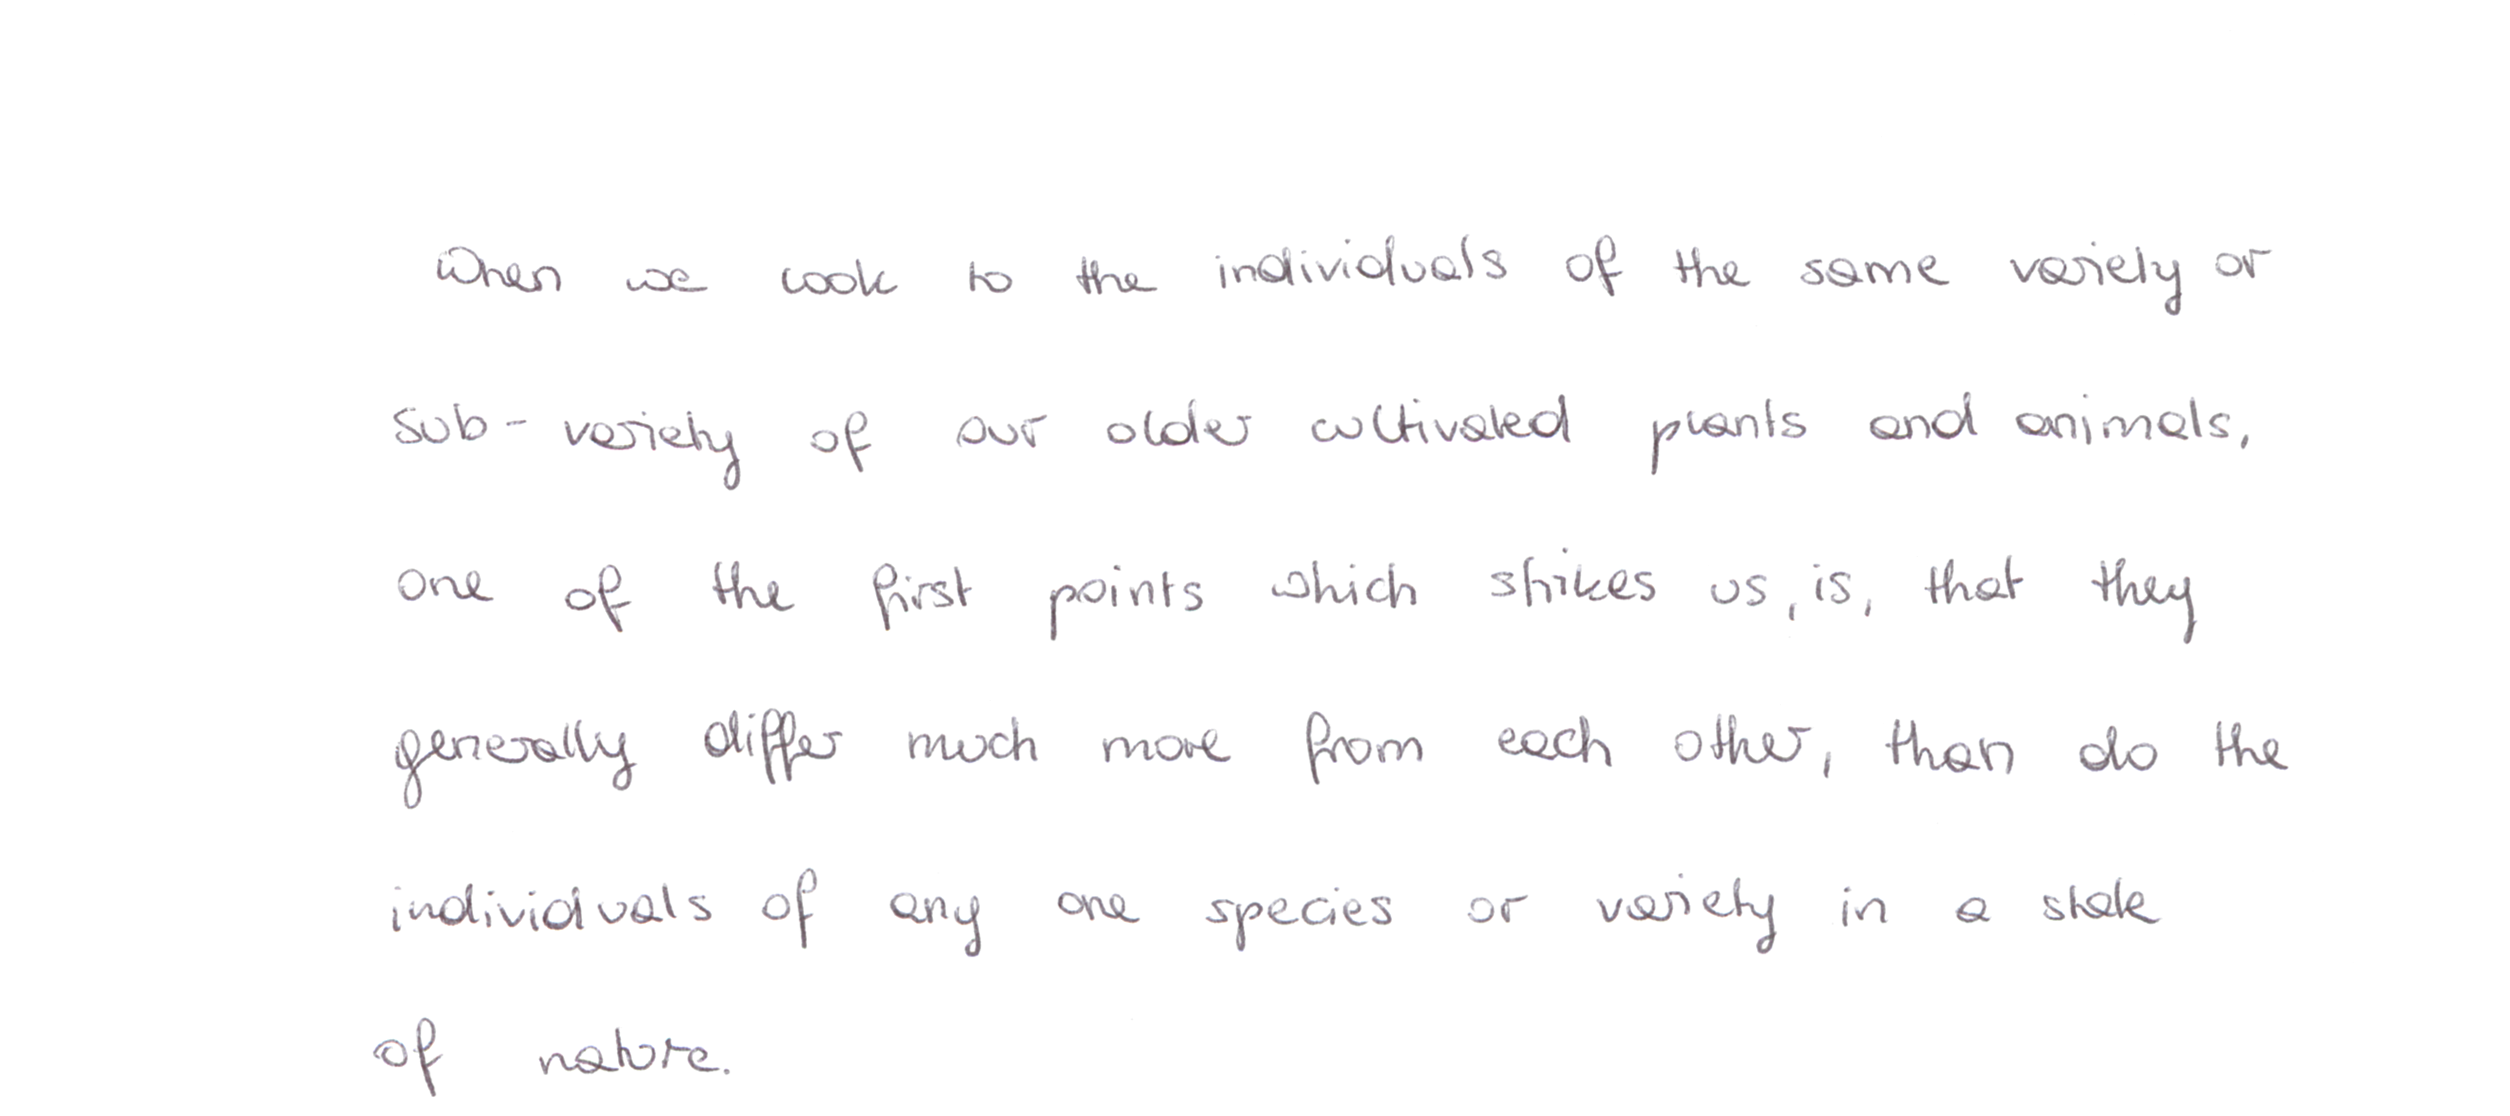 When we look to the individuals of the same variety or
sub-variety of our older cultivated plants and animals,
one of the first points which strikes us, is, that they
generally differ much more from each other, than do the
individuals of any one species or variety in a state
of nature.